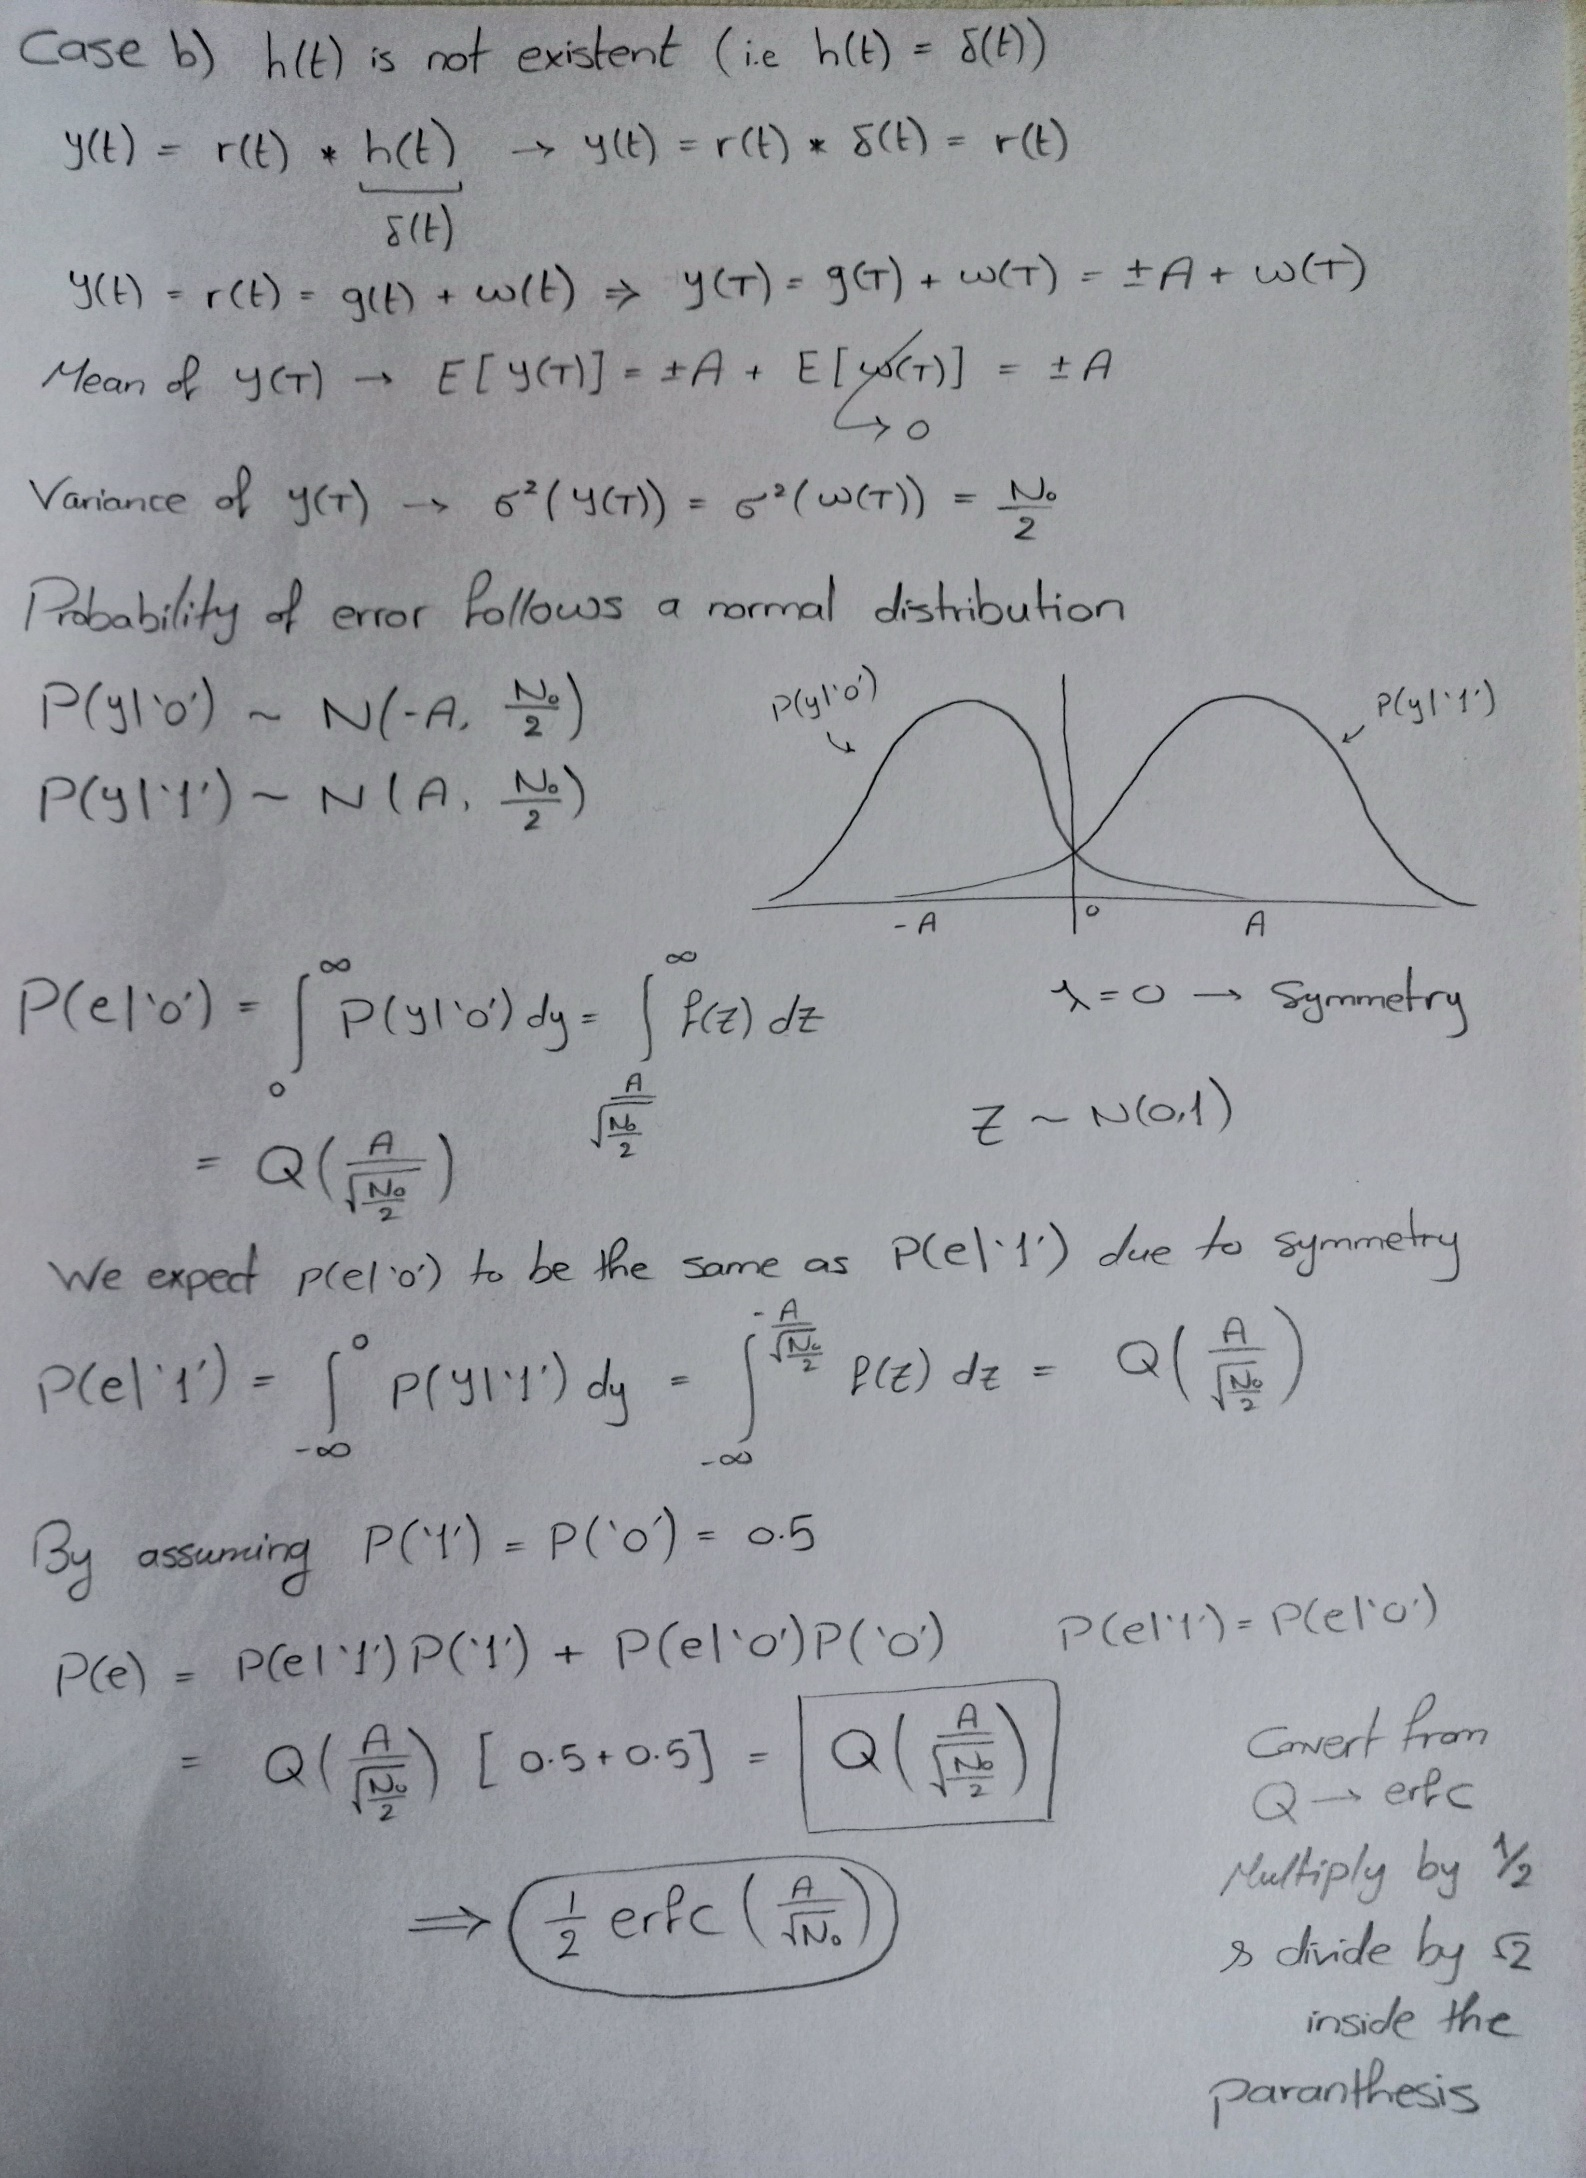 Case b) h(t) is not existent (i.e h(t) = δ(t))
y(t) = r(t) * h(t) → y(t) = r(t) * δ(t) = r(t)
δ(t)
y(t) = r(t) = g(t) + w(t) ⇒ y(T) = g(T) + w(T) = ±A + w(T)
Mean of y(T) → E[y(T)] = ±A + E[w(T)] = ±A
→ 0
Variance of y(T) → σ²(y(T)) = σ²(w(T)) = N₀/2
Probability of error follows a normal distribution
P(y|'0') ~ N(-A, N₀/2)
P(y|'1') ~ N(A, N₀/2)
P(y|'0')
P(y|'1')
-A 0 A
P(e|'0') = ∫₀^∞ P(y|'0') dy = ∫_{A/√(N₀/2)}^∞ f(z) dz
λ = 0 → Symmetry
= Q(A/√(N₀/2))
Z ~ N(0,1)
We expect p(e|'0') to be the same as P(e|'1') due to symmetry
P(e|'1') = ∫_{-∞}^0 P(y|'1') dy = ∫_{-∞}^{-A/√(N₀/2)} f(z) dz = Q(A/√(N₀/2))
By assuming P('1') = P('0') = 0.5
P(e) = P(e|'1')P('1') + P(e|'0')P('0')
P(e|'1') = P(e|'0')
= Q(A/√(N₀/2)) [0.5+0.5] = Q(A/√(N₀/2))
⇒ 1/2 erfc(A/√N₀)
Convert from
Q → erfc
Multiply by 1/2
& divide by √2
inside the
paranthesis